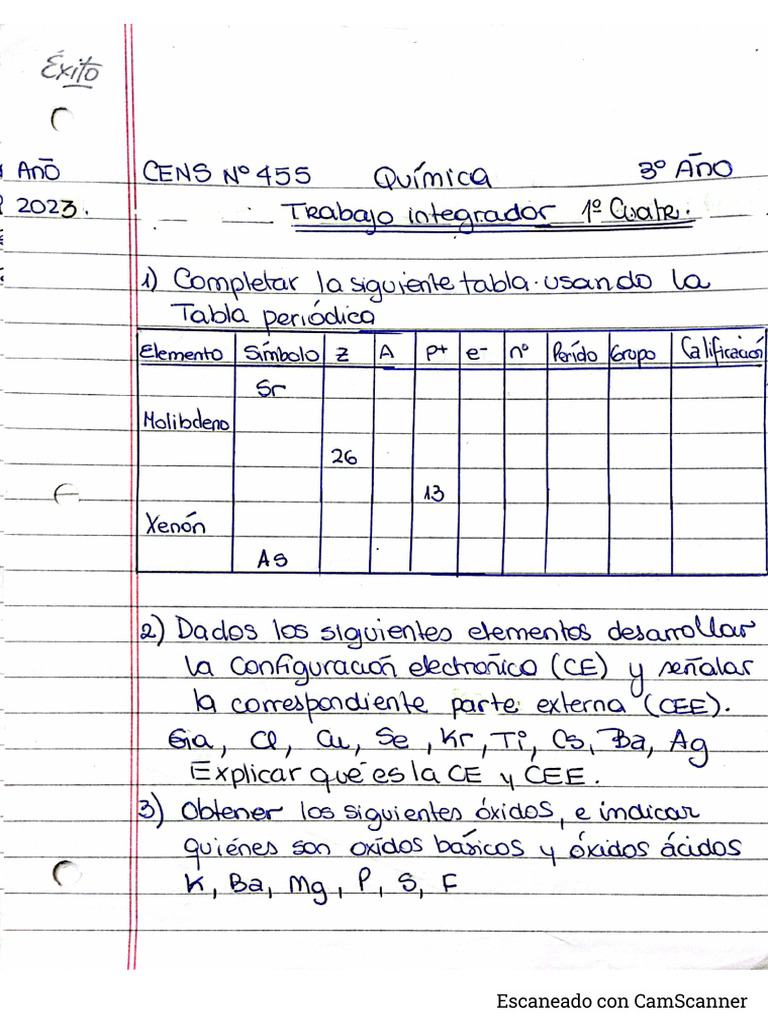 Éxito
Año CENS Nº 455 Química 3º Año
2023. Trabajo integrador 1º Cuatr.
1) Completar la siguiente tabla usando la
Tabla periódica
Elemento Símbolo Z A P+ e- nº Perído Grupo Calificación
Sr
Molibdeno
26
13
Xenón
As
2) Dados los siguientes elementos desarrollar
la configuración electrónico (CE) y señalar
la correspondiente parte externa (CEE).
Ga, Cl, Cu, Se, Kr, Ti, Cs, Ba, Ag
Explicar qué es la CE y CEE.
3) Obtener los siguientes óxidos, e indicar
quiénes son oxidos básicos y óxidos ácidos
K, Ba, Mg, P, S, F
Escaneado con CamScanner